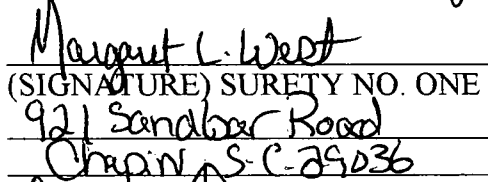 Margaret L. West
(SIGNATURE) SURETY NO. ONE
921 Sandbar Road
Chapin, S.C. 29036